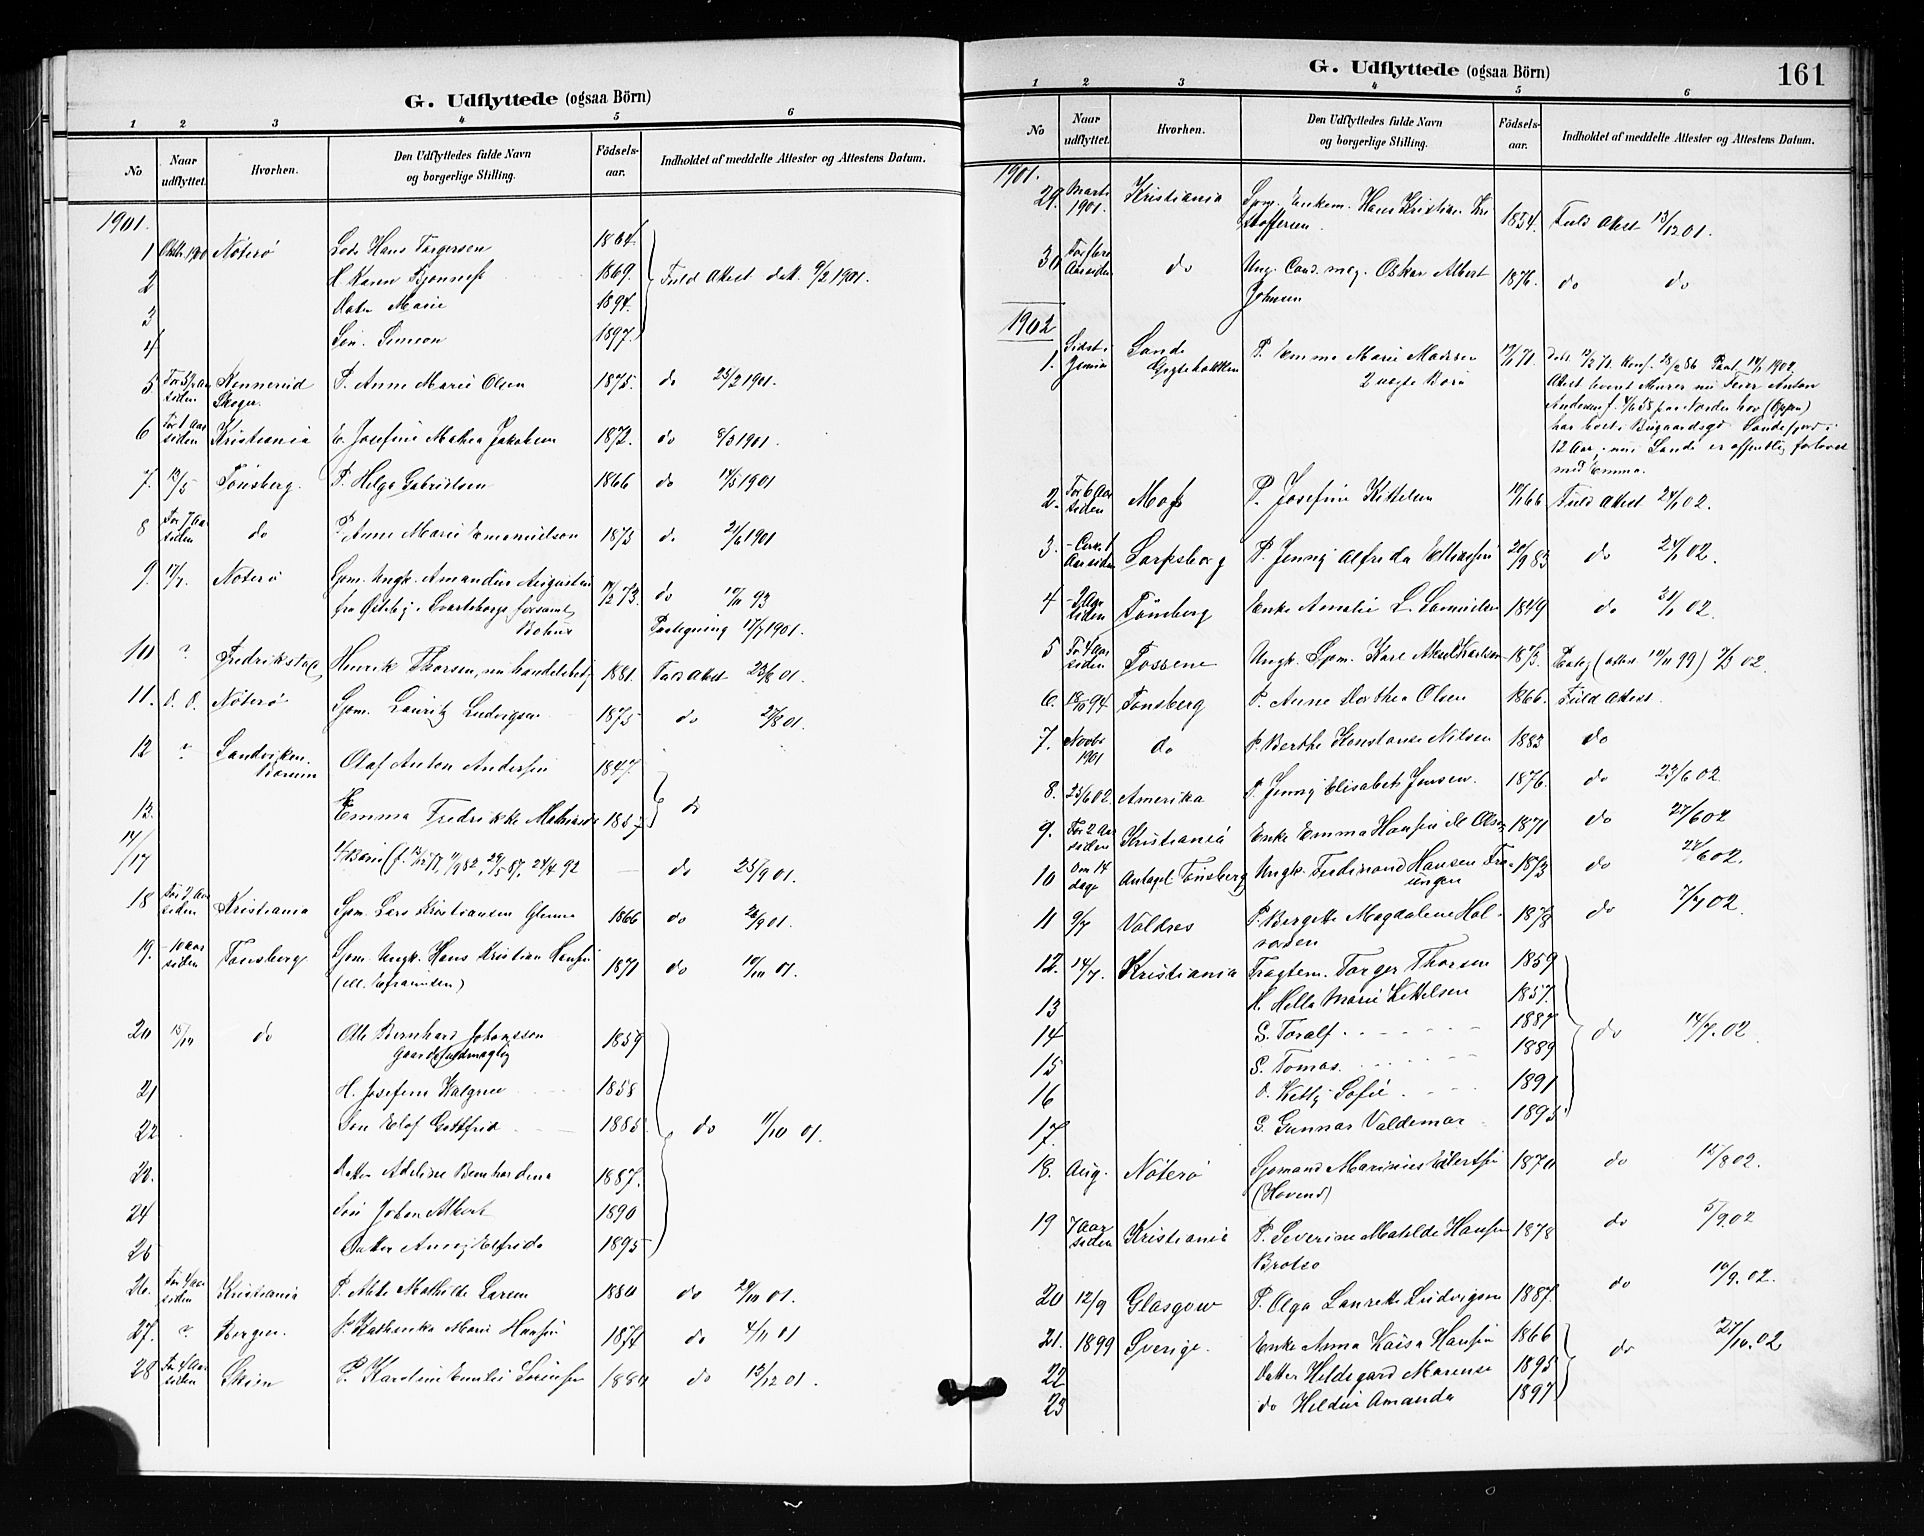 G. Udflyttede (ogsaa Börn)
1 2 3 4 5 6
No Naar udflyttet. Hvorhen. Den Udflyttedes fulde Navn og borgerlige Stilling. Födsels-aar. Indholdet af meddelte Attester og Attestens Datum.
1901.
1 Oktbr. 1900 Nöterö Lods Hans Torgersen 1864.
2 H. Karen 1869. Fuld Attest dat. 9/2 1901.
3 Dater Marie 1894.
4 Sön. Simeon 1897.
5 siden Skoger. P. Anne Marie Olsen 1875. do 25/2 1901.
6 For 1 Aar siden Kristiania E. Josefine Mathea Jakobsen 1872. do 8/3 1901.
7. 13/5 Tönsberg. P. Helga Gabrielsen 1866 do 14/5 1901
8 For 7 Aar siden do P. Anne Marie Emanuelson 1873 do 21/6 1901
9. 17/7. Nöterö Sjm. Ungk. Amandus Augustin 14/2 73. do 17/11 93
fra i Svarteborgs forsaml. Bohus Paategning 17/7 1901.
10 " Fredrikstad Henrik Thorsen, nu handelsbetj. 1881. Fuld Attest 23/8 01.
11. D. D. Nöterö Sjm. Lauritz Ludvigsen 1875 do 27/8 01.
12 " Sandviken. Bærum Olaf Anton Andersen 1847.
13. Emma Fredrikke 1857 do
14/17 4 Börn (f. 29/5 87, 24/4 92 do 25/9 01.
18 For 2 Aar siden Kristiania Sjm. Lars Kristiansen Glenne 1866 do 26/9 01.
19. - 10 Aar siden Tönsberg Sjm. Ungk. Hans Kristian Hansen 1871 do 10/10 01.
(ell. Efraimsen)
20 15/10 do Otto Bernhard Johansson 1859
Gaardsfuldmægtig
21 H. Josefine 1858
22 Sön Elof Gottfrid 1885 do 11/10 01.
23. Datter Adeline Bernhardena 1887.
24 Sön Johan Albert 1890
25 Datter Anny Elfrida 1895
26. For 4 Aar siden Kristiania P. Mathilde Larsen 1880 do 29/10 01.
27. " Bergen. P. Kathinka Marie Hansen 1874 do 4/11 01
28 For 4 Aar siden Skien P. Karoline Emilie 1880 do 13/12 01.
G. Udflyttede (ogsaa Börn) 161
1 2 3 4 5 6
No Naar udflyttet. Hvorhen. Den Udflyttedes fulde Navn og borgerlige Stilling. Födsels-aar. Indholdet af meddelte Attester og Attestens Datum.
1901.
29. Marts 1901. Kristiania Sjm. Enkem. Hans Kristian Kri
stoffersen 1834. Fuld Attest 13/12 01.
30 For flere Aar siden do Ung. Cand. mag. Oskar Albert
Johnsen 1876. do do
1902
1. Sidst i Sande P. Emma Marie Madsen
2 uægte Börn
Andersen f. 4/6 58 paa Norderhov
har boet i Bugaardsgd Sandefjord i
12 Aar, nu i Sande er offentlig forlovet
med Emma.
2. For 6 Aar siden Moss P. Josefine Kittelsen 17/1 66 Fuld Attest 24/1 02.
3. - Cirk. 1 Aar siden Sarpsborg P. Jenny Alfrida 20/9 83 do 24/1 02.
4 - 2 Aar siden Tönsberg Enke Amalie L. Samuelsen 1849 do 31/1 02.
5 For 4 Aar siden Tossene Ungk. Sjm. Karl Aksel Karlson 1873. Pateg (attest 10/11 99) 7/3 02.
6. Tönsberg P. Anne Dorthea Olsen 1866. Fuld Attest.
7. Novbr 1901 do P. Berthe Konstanse Nilsen 1883 do
8. 23/6 02. Amerika P. Jenny Elisabeth Jensen. 1876. do 23/6 02
9. For 2 Aar siden Kristiania Enke Emma Hansen f. Olsen 1871 do 27/6 02
10 Om 14 dage Antagel Tönsberg Ungk. Ferdinand Hansen 1873 do 27/6 02.
11 9/7 Valdres P. Bergitte Magdalene Hal-
vorsen 1878 do 7/7 02.
12. 14/7. Kristiania Fragtem. Torger Thorsen 1859
13 H. Hella Marie Kittelsen 1857.
14 S. Toralf. 1887 do 14/7. 02.
15 S. Tomas. 1889
16 D. Ketty Sofie. 1891
17. S. Gunnar Valdemar 1895.
18. Aug. Nöterö Sjömand Marinius Eilertsen 1870 do 15/8 02.
19 7 Aar siden Kristiania P. Severine Matilde Hansen 1878 do 5/9. 02
20 12/9 Glasgow P. Olga Laurette Ludvigsen 1887. do 10/9. 02.
21. 1899 Sverige. Enke Anna Kaisa Hansen 1866
22 Datter Hildegard Marense 1895 do 27/10. 02
23 do Hildur Amanda 1897